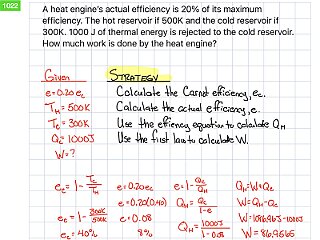 1022
A heat engine's actual efficiency is 20% of its maximum
efficiency. The hot reservoir if 500K and the cold reservoir if
300K. 1000 J of thermal energy is rejected to the cold reservoir.
How much work is done by the heat engine?
Given
e=0.20 e_c
T_H = 500K
T_c = 300K
Q_c = 1000J
W = ?
STRATEGY
Calculate the Carnot efficiency, e_c.
Calculate the actual efficiency, e.
Use the effiency equation to calculate Q_H
Use the first law to calculate W.
e_c = 1 - T_c/T_H
e_c = 1 - 300K/500K
e_c = 40%
e = 0.20e_c
e = 0.20(0.40)
e = 0.08
8%
e = 1 - Q_c/Q_H
Q_H = Q_c/1-e
Q_H = 1000J/1-0.08
Q_H = W+Q_c
W = Q_H - Q_c
W = 1086.96J - 1000J
W = 86.9565